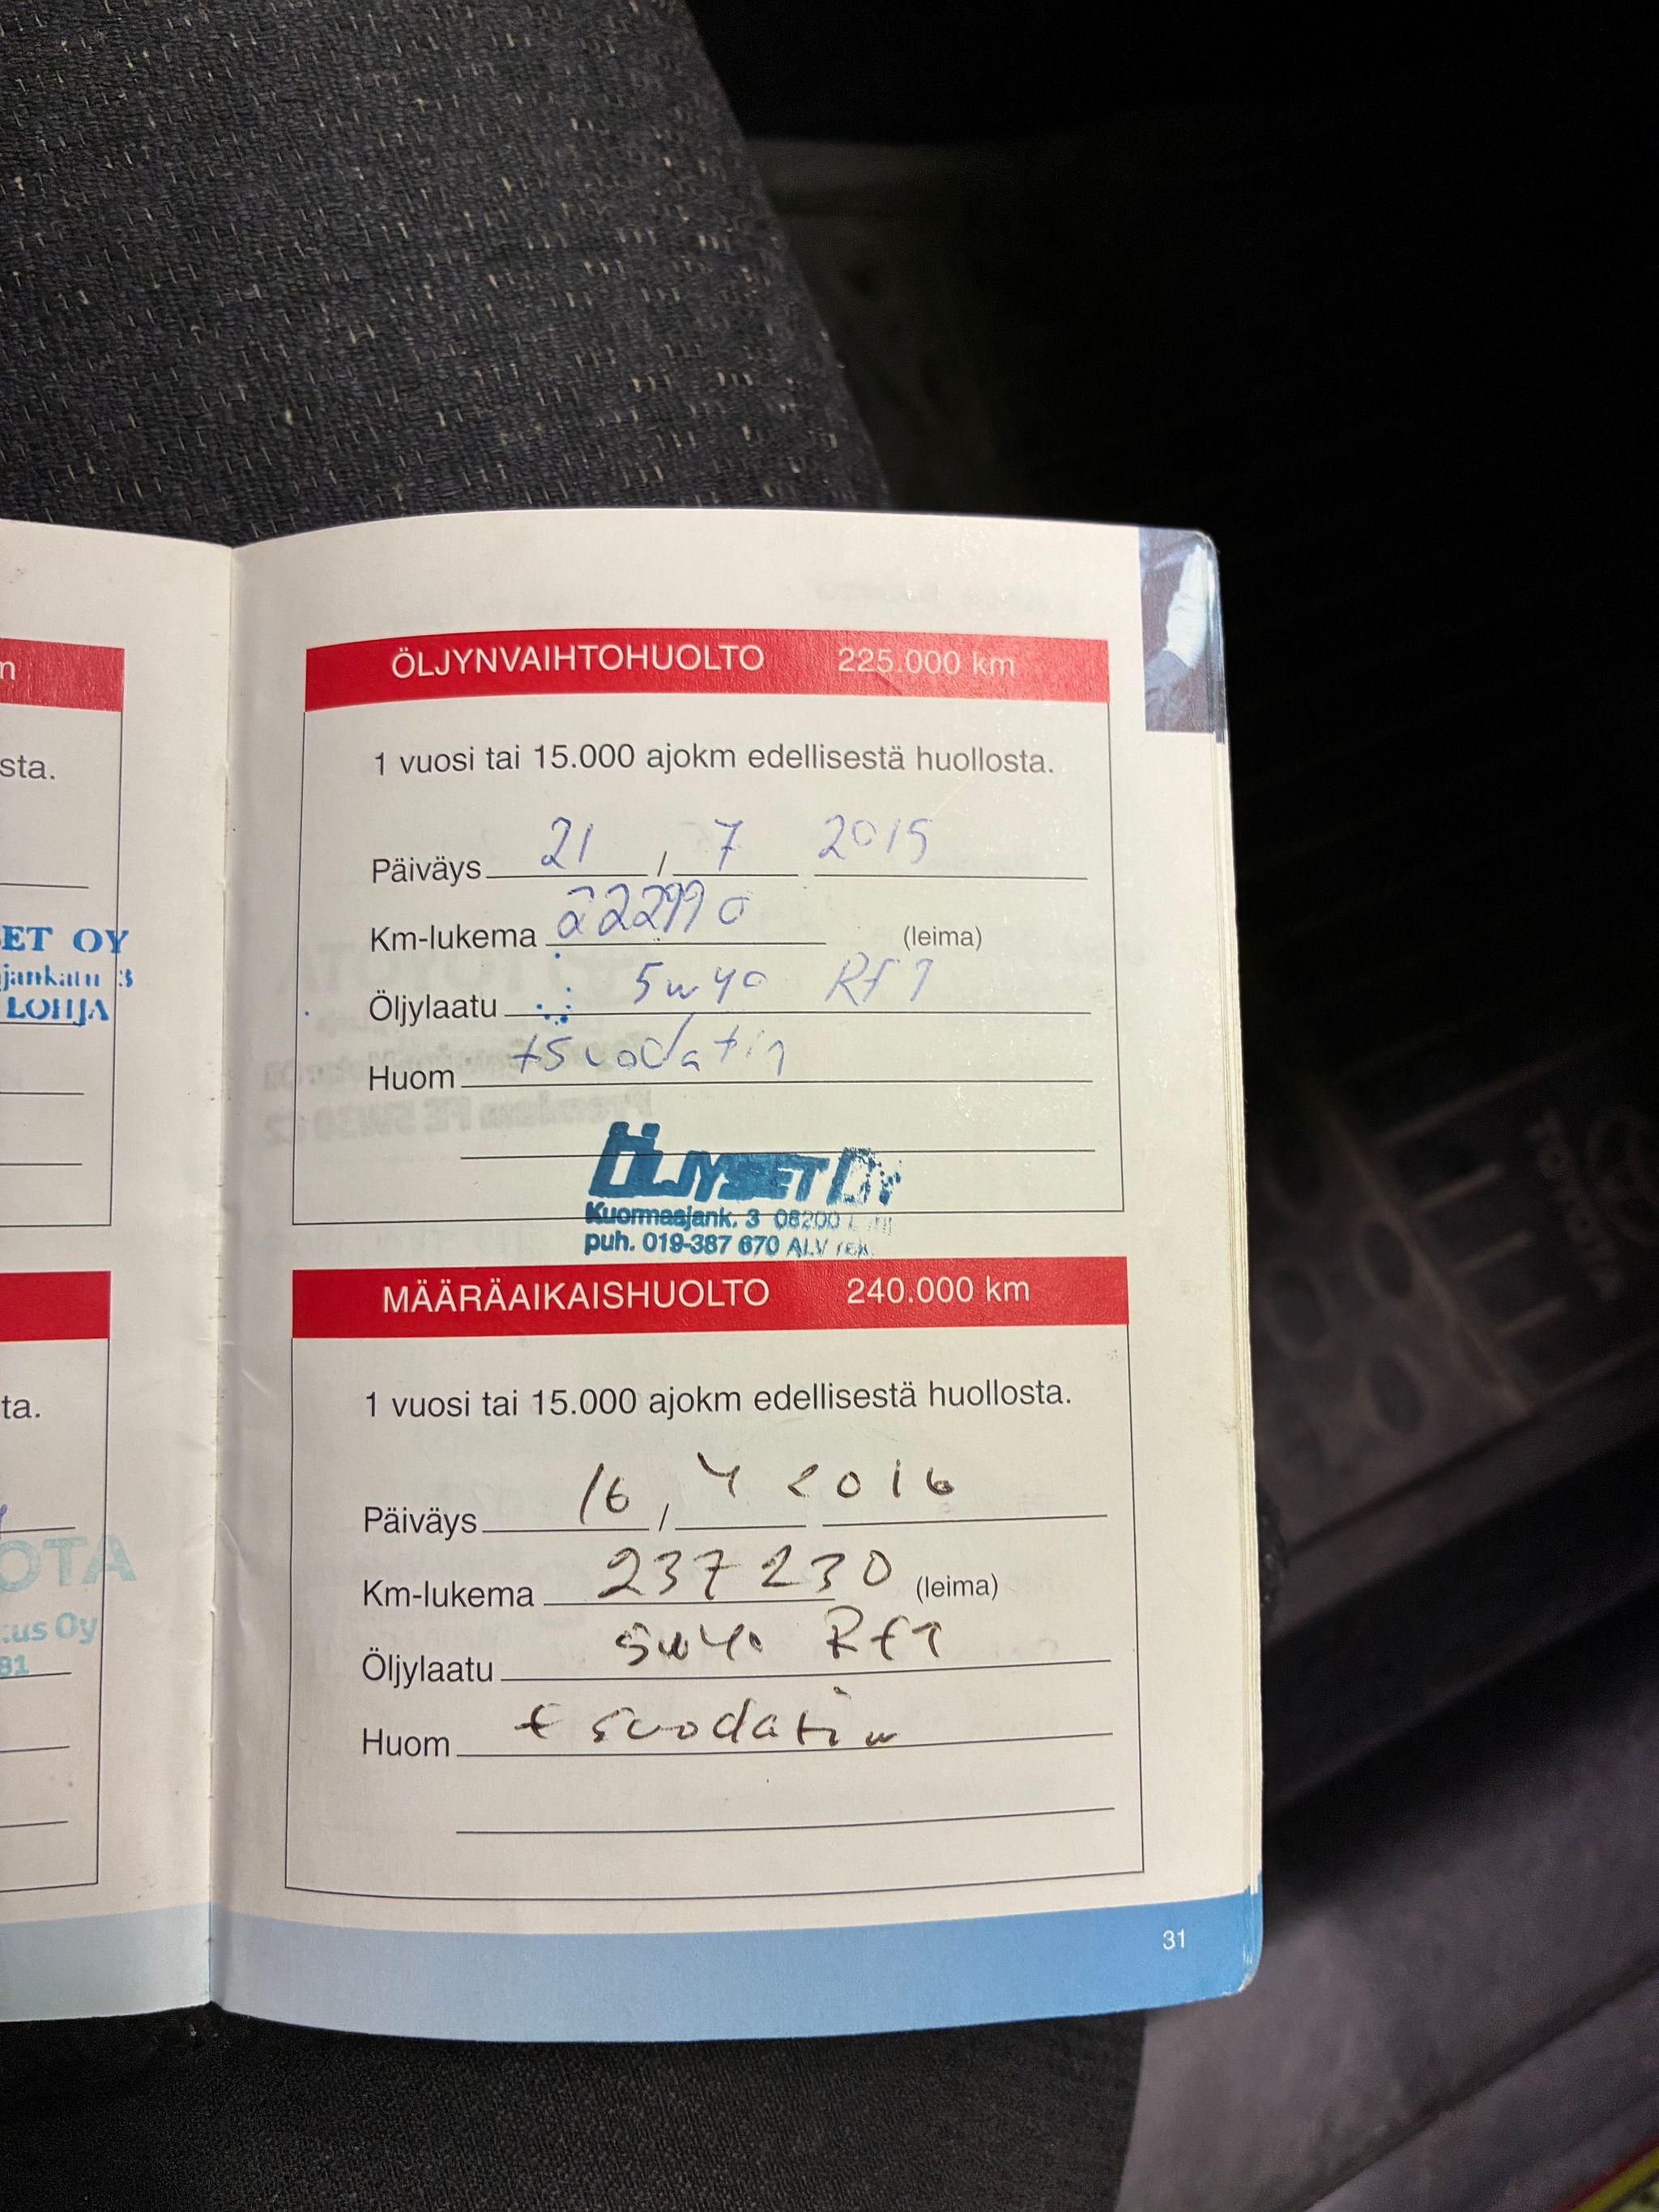 n
sta.
ET OY
jankatu 3
LOHJA
ta.
OTA
us Oy
81
ÖLJYNVAIHTOHUOLTO 225.000 km
1 vuosi tai 15.000 ajokm edellisestä huollosta.
Päiväys 21 / 7 2015
Km-lukema 222990 (leima)
Öljylaatu 5w40 Rf1
Huom +Suodatin
ÖLJYSET OY
Kuormaajank. 3 08200
puh. 019-387 670 ALV rek.
MÄÄRÄAIKAISHUOLTO 240.000 km
1 vuosi tai 15.000 ajokm edellisestä huollosta.
Päiväys 16 / 4 2016
Km-lukema 237230 (leima)
Öljylaatu 5w40 Rf1
Huom + suodatin
31